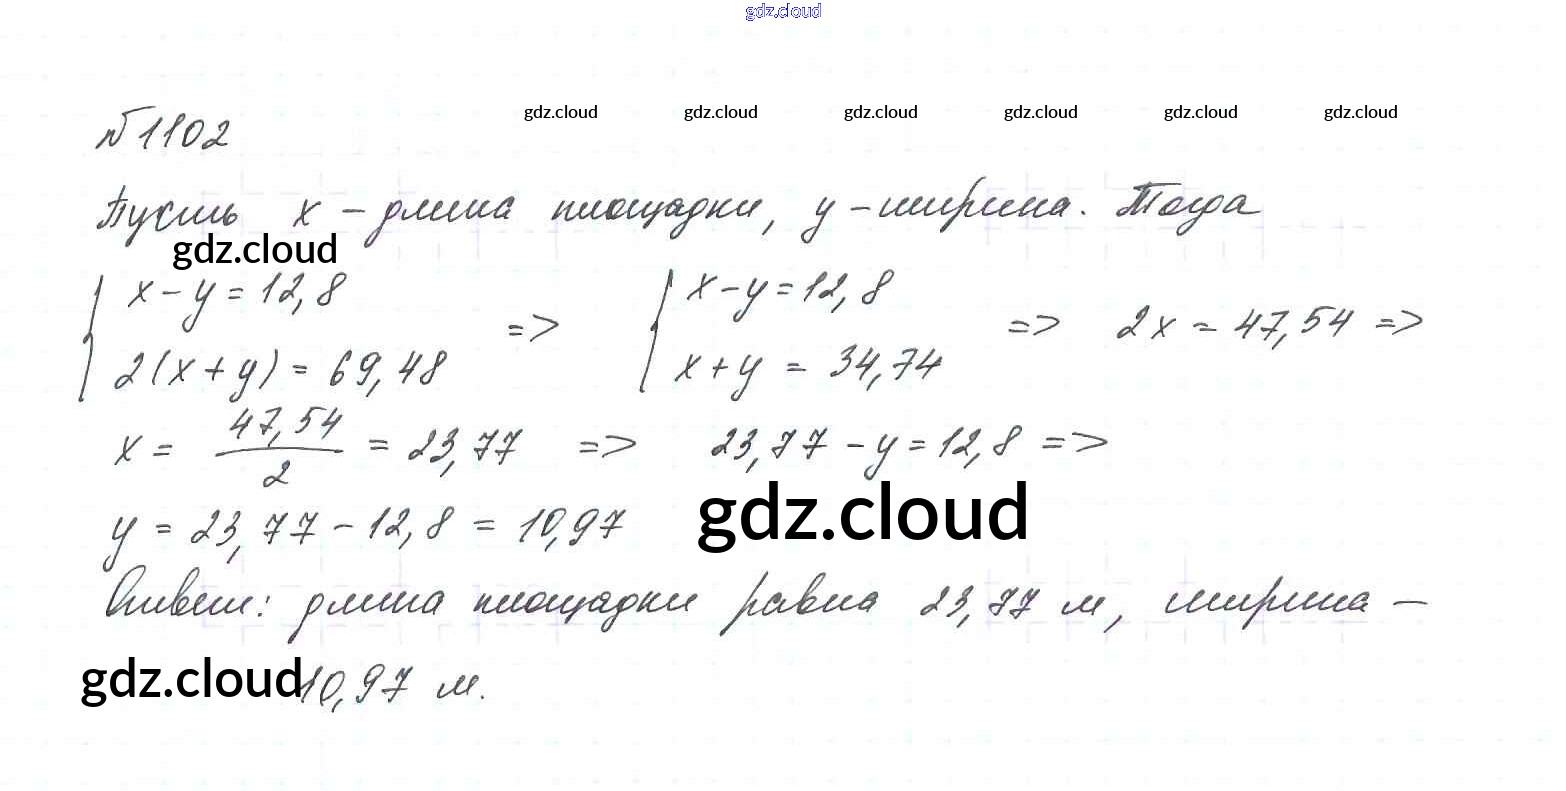 gdz.cloud
gdz.cloud gdz.cloud gdz.cloud gdz.cloud gdz.cloud gdz.cloud
№1102
Пусть x – длина площадки, y – ширина. Тогда
gdz.cloud
{ x – y = 12,8 => { x – y = 12,8 => 2x = 47,54 =>
2(x + y) = 69,48 x + y = 34,74
x = 47,54/2 = 23,77 => 23,77 – y = 12,8 =>
y = 23,77 – 12,8 = 10,97 gdz.cloud
Ответ: длина площадки равна 23,77 м, ширина –
gdz.cloud 10,97 м.